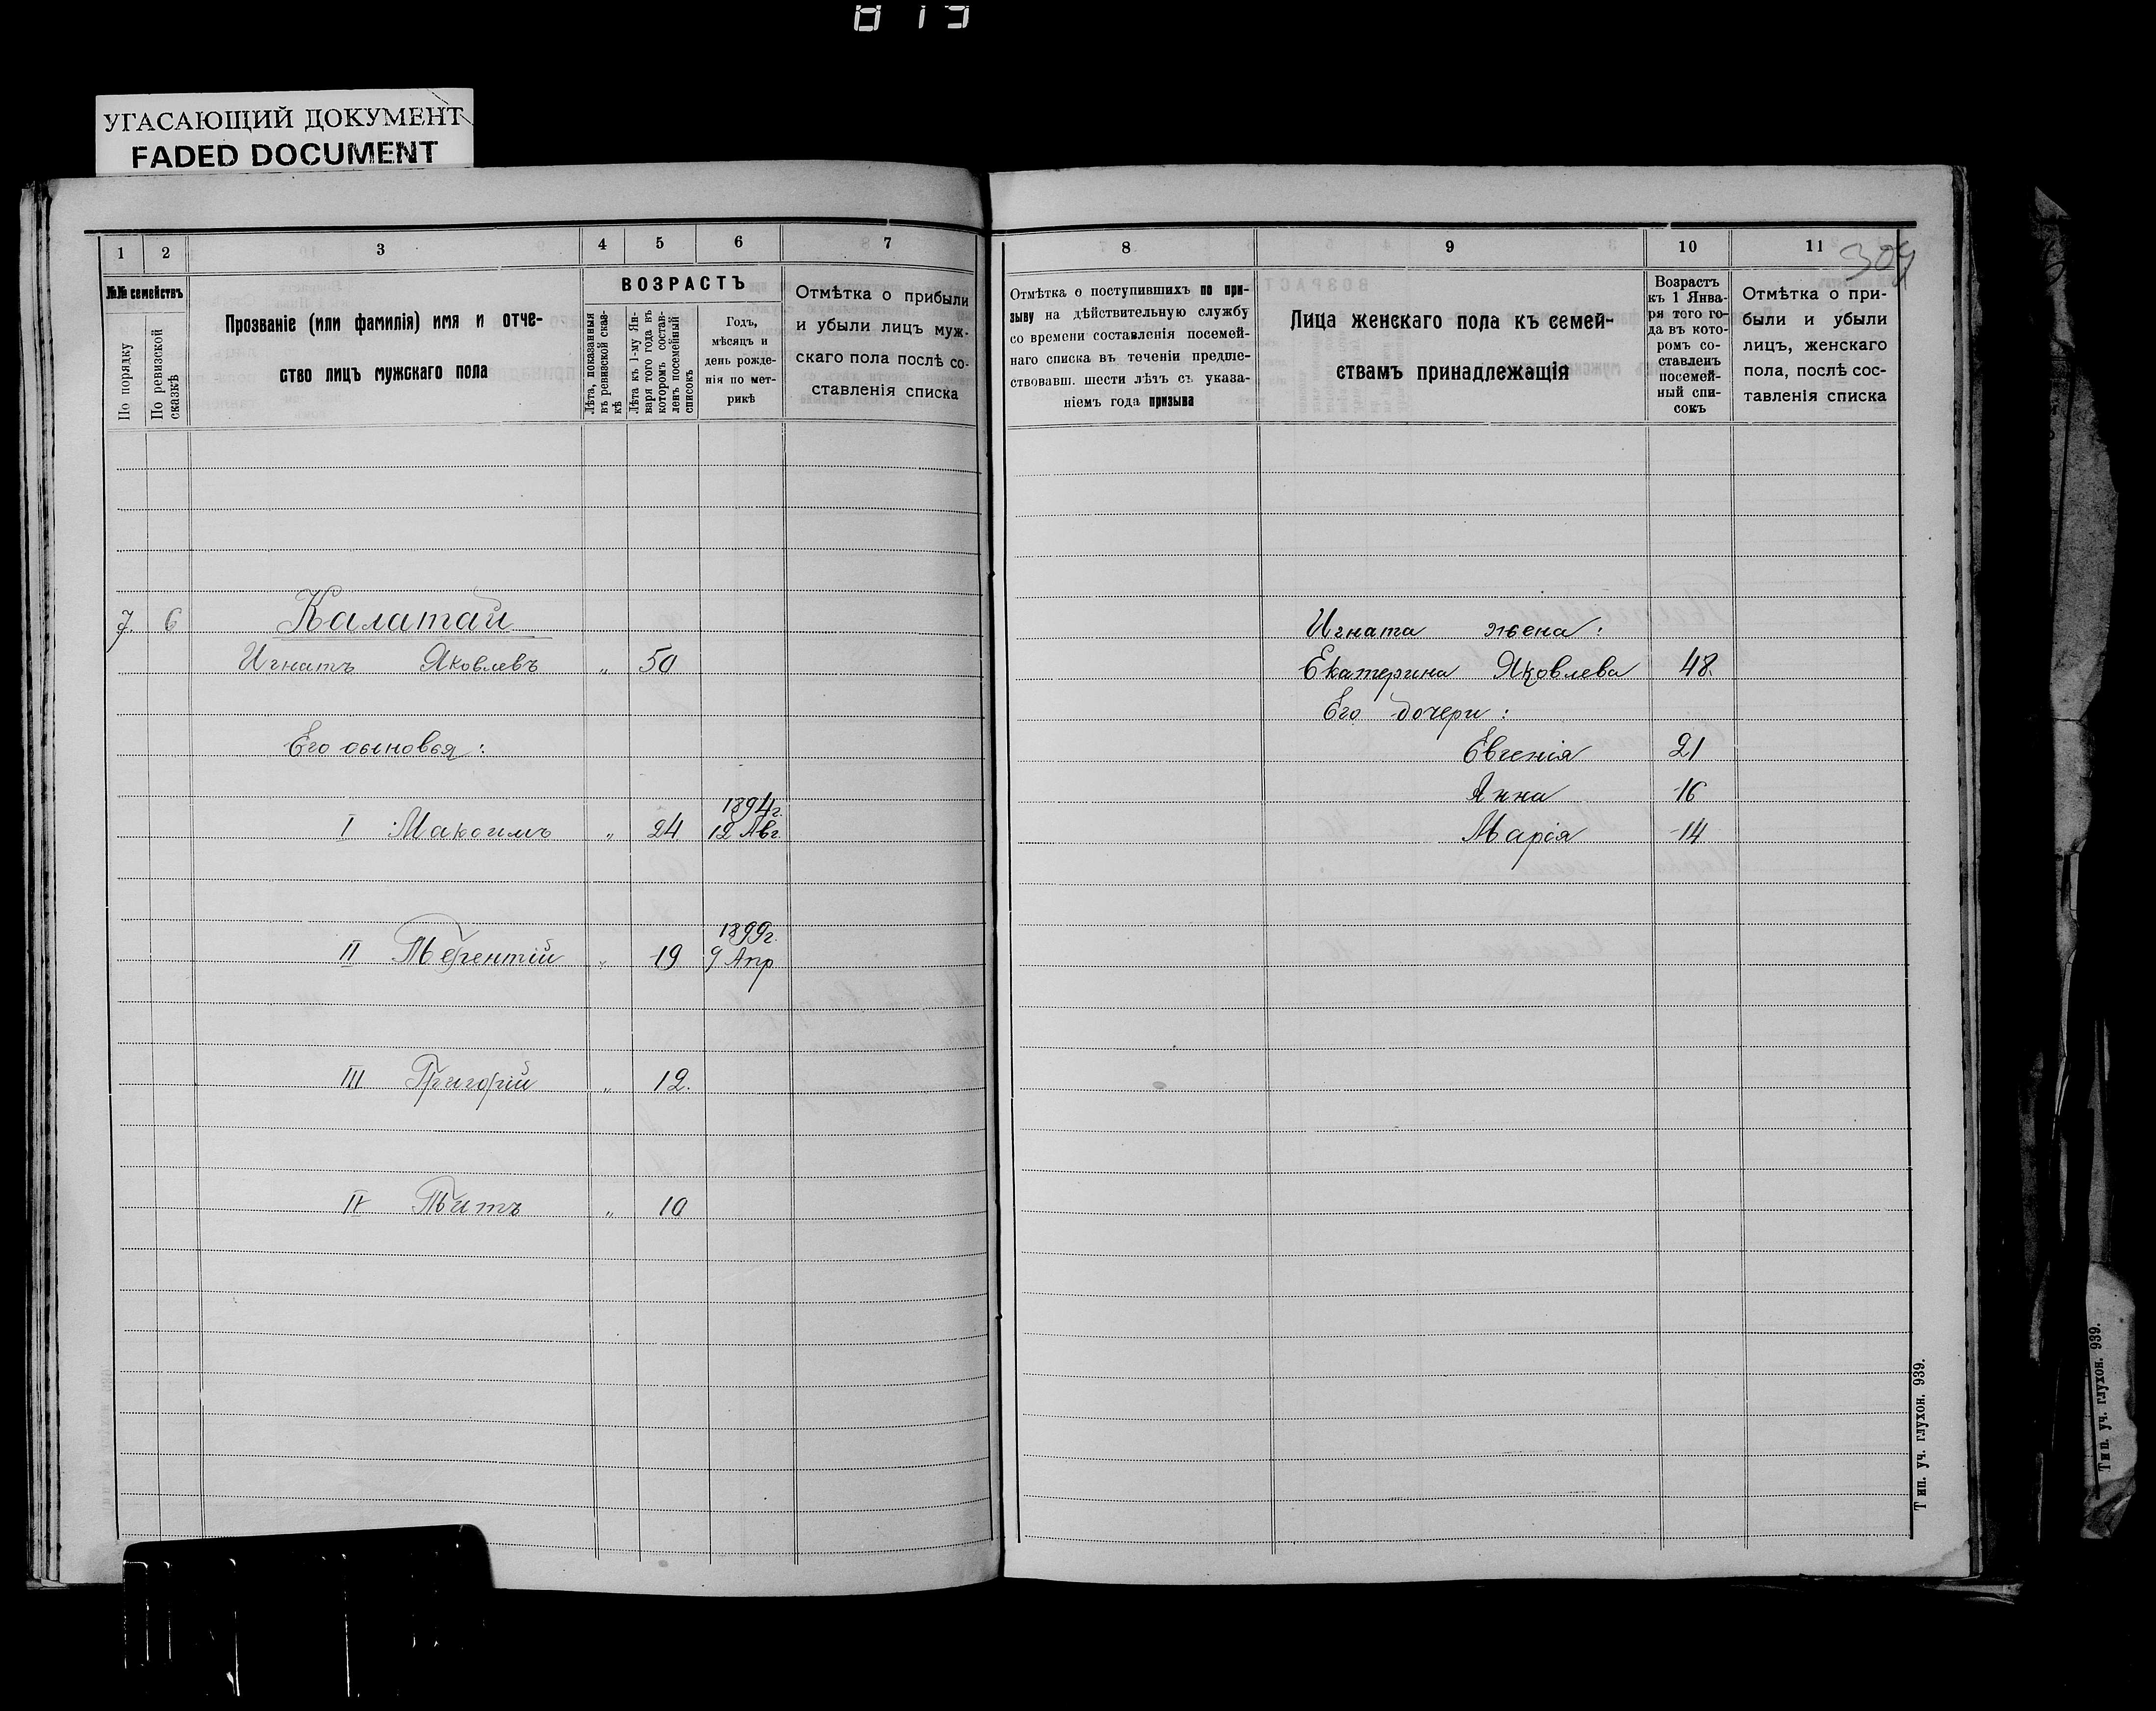 819
УГАСАЮЩИЙ ДОКУМЕНТ
FADED DOCUMENT
1 2 3 4 5 6 7
№№ семействъ
По порядку
По ревизской сказкѣ
Прозваніе (или фамилія) имя и отче-
ство лицъ мужскаго пола
ВОЗРАСТЪ
Лѣта, показанныя
въ ревизской сказ-
кѣ
Лѣта къ 1-му Ян-
варя того года въ
которомъ состав-
ленъ посемейный
списокъ
Годъ,
мѣсяцъ и
день рожде-
нія по мет-
рикѣ
Отмѣтка о прибыли
и убыли лицъ муж-
скаго пола послѣ со-
ставленія списка
7. 6 Калатай
Игнатъ Яковлевъ „ 50
Его сыновья:
1894г.
I Максимъ „ 24 12 Авг.
1899г.
II Терентій „ 19 9 Апр
III Григорій „ 12.
IV Титъ „ 10
8 9 10 11
304
Отмѣтка о поступившихъ по при-
зыву на дѣйствительную службу
со времени составленія посемей-
наго списка въ теченіи предше-
ствовавш. шести лѣтъ съ указа-
ніемъ года призыва
Лица женскаго пола къ семей-
ствамъ принадлежащія
Возрастъ
къ 1 Янва-
ря того го-
да въ кото-
ромъ со-
ставленъ
посемей-
ный спи-
сокъ
Отмѣтка о при-
были и убыли
лицъ, женскаго
пола, послѣ сос-
тавленія списка
Игната жена:
Екатерина Яковлева 48.
Его дочери:
Евгенія 21
Анна 16
Марія 14
Тип. уч. глухон. 939.
Тип. уч. глухон. 939.